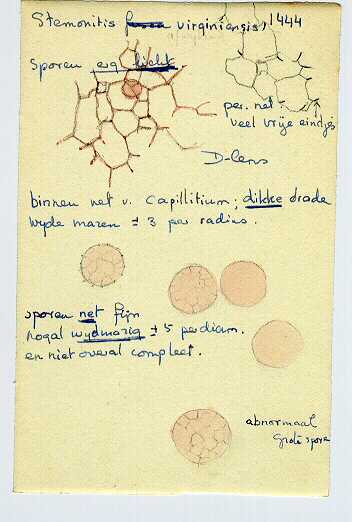 Stemonitis fusca virginiensis, 1444
sporen erg licht
per. net
veel vrije eindjes
D-lens
binnen net v. Capillitium; dikke drade
wyde mazen ± 3 per radius.
sporen net fijn
nogal wydmazig ± 5 per diam.
en niet overal compleet.
abnormaal
grote spore